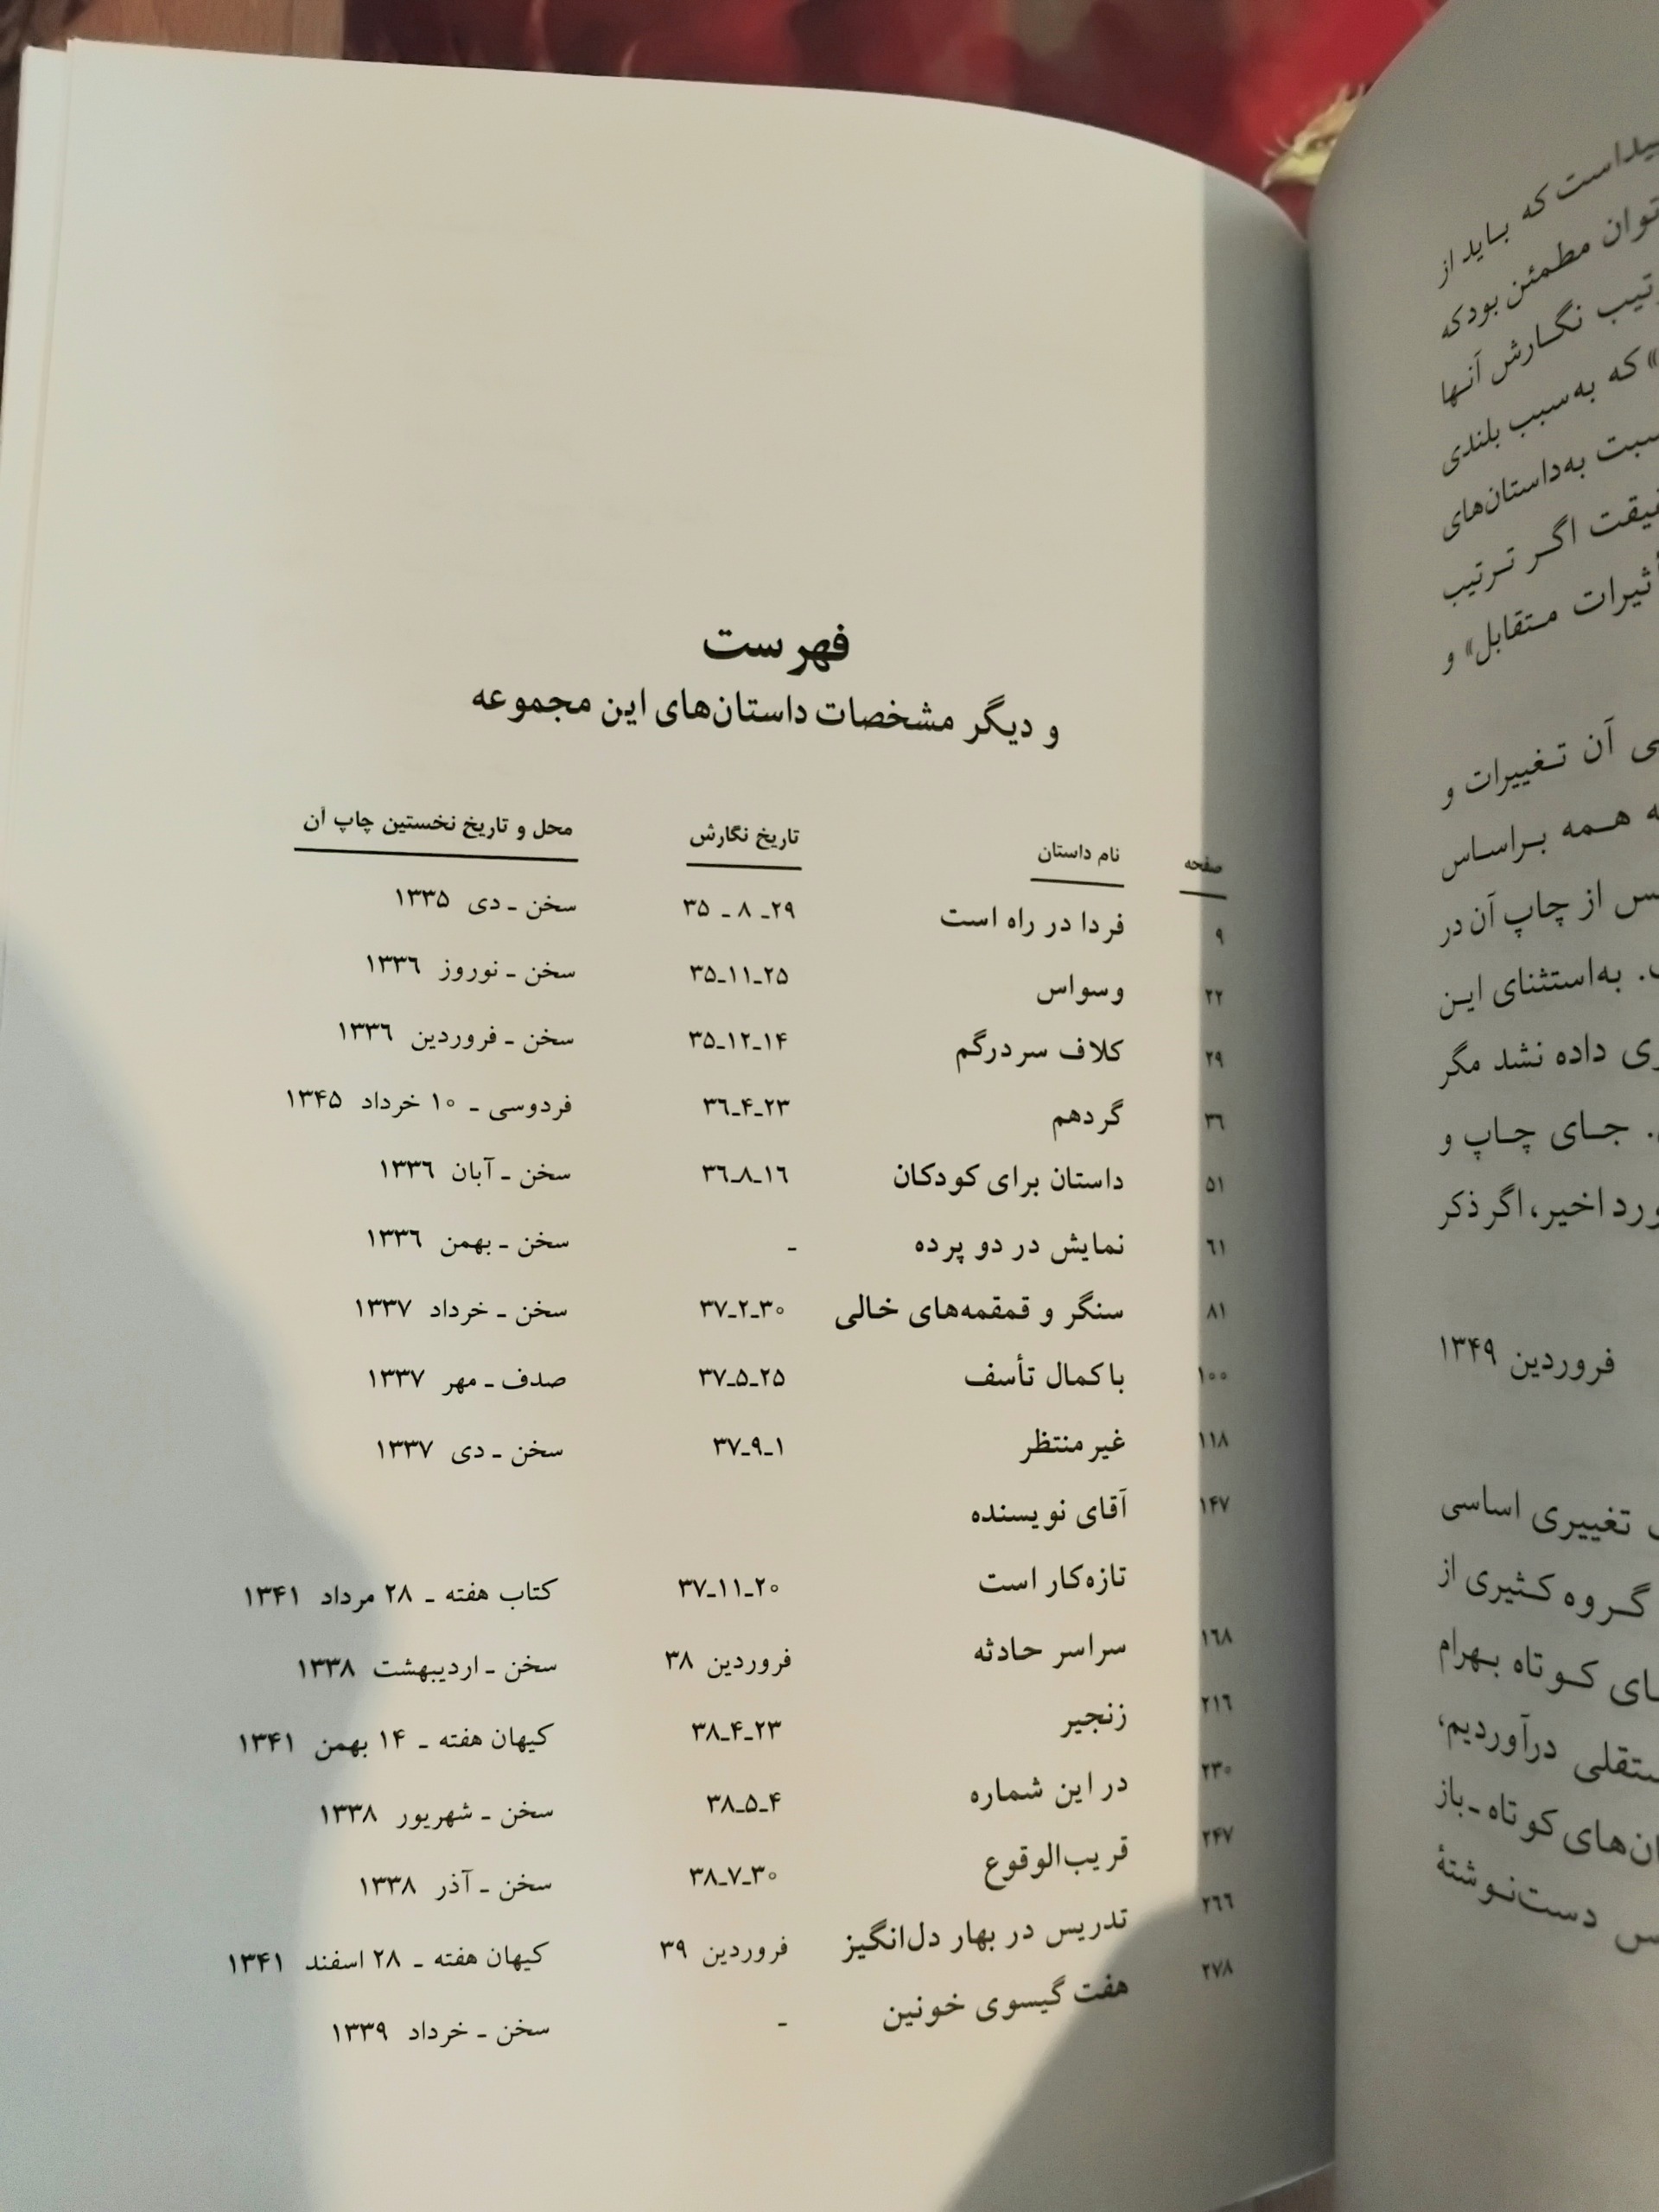 فهرست
و دیگر مشخصات داستان‌های این مجموعه
صفحه نام داستان تاریخ نگارش محل و تاریخ نخستین چاپ آن
۹ فردا در راه است ۲۹ـ ۸ ـ ۳۵ سخن ـ دی ۱۳۳۵
۲۲ وسواس ۲۵ـ۱۱ـ۳۵ سخن ـ نوروز ۱۳۳۶
۲۹ کلاف سردرگم ۱۴ـ۱۲ـ۳۵ سخن ـ فروردین ۱۳۳۶
۳۶ گردهم ۲۳ـ۴ـ۳۶ فردوسی ـ ۱۰ خرداد ۱۳۴۵
۵۱ داستان برای کودکان ۱۶ـ۸ـ۳۶ سخن ـ آبان ۱۳۳۶
۶۱ نمایش در دو پرده - سخن ـ بهمن ۱۳۳۶
۸۱ سنگر و قمقمه‌های خالی ۳۰ـ۲ـ۳۷ سخن ـ خرداد ۱۳۳۷
۱۰۰ باکمال تأسف ۲۵ـ۵ـ۳۷ صدف ـ مهر ۱۳۳۷
۱۱۸ غیرمنتظر ۱ـ۹ـ۳۷ سخن ـ دی ۱۳۳۷
۱۴۷ آقای نویسنده
تازه‌کار است ۲۰ـ۱۱ـ۳۷ کتاب هفته ـ ۲۸ مرداد ۱۳۴۱
۱۶۸ سراسر حادثه فروردین ۳۸ سخن ـ اردیبهشت ۱۳۳۸
۲۱۶ زنجیر ۲۳ـ۴ـ۳۸ کیهان هفته ـ ۱۴ بهمن ۱۳۴۱
۲۳۰ در این شماره ۴ـ۵ـ۳۸ سخن ـ شهریور ۱۳۳۸
۲۴۷ قریب‌الوقوع ۳۰ـ۷ـ۳۸ سخن ـ آذر ۱۳۳۸
۲۶۶ تدریس در بهار دل‌انگیز فروردین ۳۹ کیهان هفته ـ ۲۸ اسفند ۱۳۴۱
۲۷۸ هفت گیسوی خونین - سخن ـ خرداد ۱۳۳۹
که باید از
مطمئن بود که
نگارش آنها
» که به‌سبب بلندی
به‌داستان‌های
اگر ترتیب
متقابل» و
آن تغییرات و
همه براساس
از چاپ آن در
به‌استثنای این
داده نشد مگر
جای چاپ و
اخیر، اگر ذکر
فروردین ۱۳۴۹
تغییری اساسی
گروه کثیری از
کوتاه بهرام
درآوردیم،
کوتاه ـ باز
دست‌نوشتهٔ